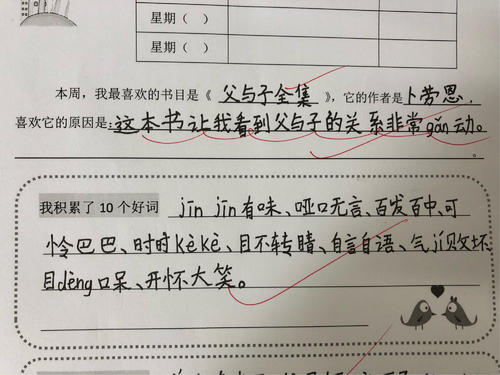 星期（ ）
星期（ ）
本周，我最喜欢的书目是《 父与子全集 》，它的作者是卜劳恩，
喜欢它的原因是:这本书让我看到父与子的关系非常gǎn动。
。
我积累了 10 个好词 jīn jīn有味、哑口无言、百发百中、可
怜巴巴、时时kèkè、目不转睛、自言自语、气jí败坏
目dèng口呆、开怀大笑。